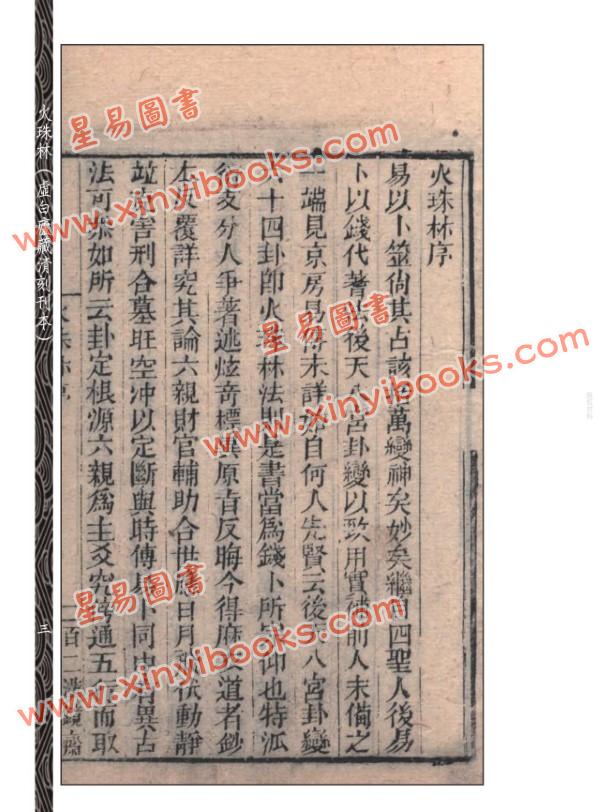 火珠林序
易以卜筮尙其占該括萬變神矣妙矣繼自四聖人後易
卜以錢代蓍法後天八宮卦變以致用實補前人未備之
一端見京房易傳未詳始自何人先賢云後天八宮卦變
六十四卦即火珠林法則是書當爲錢卜所宗仰也特派
衍支分人爭著述炫竒標異原旨反晦今得麻衣道者鈔
本反覆詳究其論六親財官輔助合世應日月飛伏動靜
並尅害刑合墓旺空冲以定斷與時傳易卜同中有異古
法可參如所云卦定根源六親爲主爻究旁通五行而取
火珠林序
一
百二漢鏡齋
火珠林(虛白廬藏清刻刊本)
三
星易圖書
www.xinyibooks.com
星易圖書
www.xinyibooks.com
星易圖書
www.xinyibooks.com